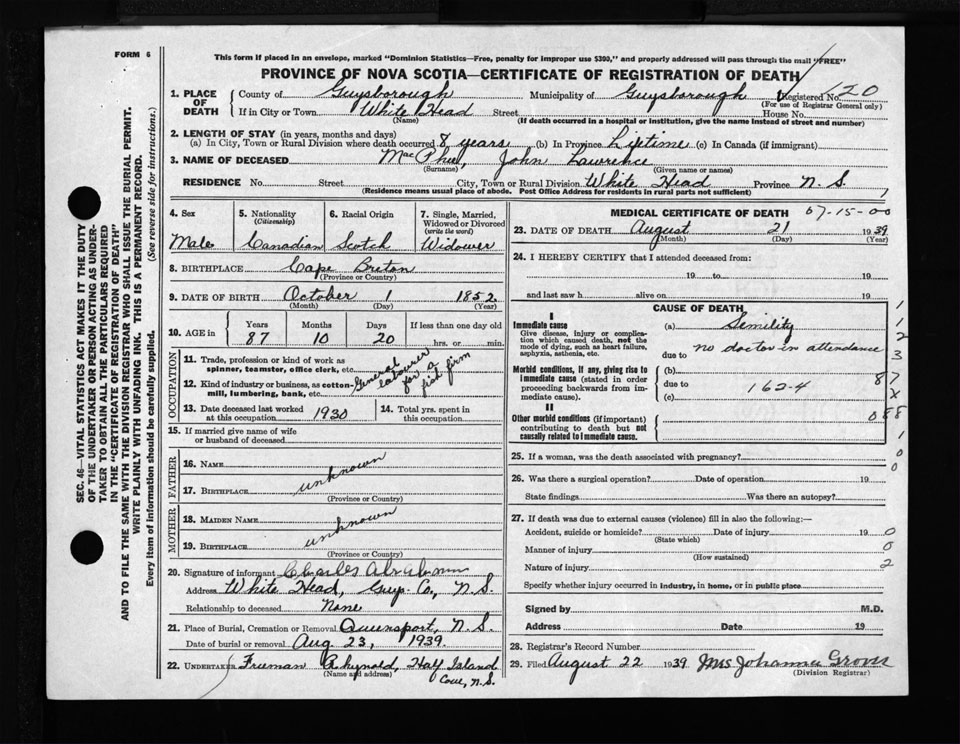 FORM 6
This form if placed in an envelope, marked "Dominion Statistics—Free, penalty for improper use $300," and properly addressed will pass through the mail "FREE"
PROVINCE OF NOVA SCOTIA—CERTIFICATE OF REGISTRATION OF DEATH
1. PLACE OF DEATH
County of Guysborough Municipality of Guysborough Registered No. 20
(For use of Registrar General only)
If in City or Town White Head Street House No.
(Name) (If death occurred in a hospital or institution, give the name instead of street and number)
2. LENGTH OF STAY (in years, months and days)
(a) In City, Town or Rural Division where death occurred 8 years (b) In Province Lifetime (c) In Canada (if immigrant)
3. NAME OF DECEASED MacPhee, John Lawrence
(Surname) (Given name or names)
RESIDENCE No. Street City, Town or Rural Division White Head Province N.S.
(Residence means usual place of abode. Post Office Address for residents in rural parts not sufficient)
4. Sex
Male
5. Nationality
(Citizenship)
Canadian
6. Racial Origin
Scotch
7. Single, Married, Widowed or Divorced
(write the word)
Widower
8. BIRTHPLACE Cape Breton
(Province or Country)
9. DATE OF BIRTH October 1 1852
(Month) (Day) (Year)
10. AGE in
Years Months Days If less than one day old
87 10 20 hrs. or min.
OCCUPATION
11. Trade, profession or kind of work as spinner, teamster, office clerk, etc.
12. Kind of industry or business, as cotton-mill, lumbering, bank, etc.
General labourer for a fish firm
13. Date deceased last worked at this occupation 1930
14. Total yrs. spent in this occupation
15. If married give name of wife or husband of deceased
FATHER
16. NAME
unknown
17. BIRTHPLACE
(Province or Country)
MOTHER
18. MAIDEN NAME
unknown
19. BIRTHPLACE
(Province or Country)
20. Signature of informant Charles
Address White Head, Guys. Co., N.S.
Relationship to deceased None
21. Place of Burial, Cremation or Removal Queensport, N.S.
Date of burial or removal Aug 23, 1939.
22. UNDERTAKER Freeman Rhynold, Half Island
(Name and address) Cove, N.S.
MEDICAL CERTIFICATE OF DEATH 67-15-00
23. DATE OF DEATH August 21 1939
(Month) (Day) (Year)
24. I HEREBY CERTIFY that I attended deceased from:
19 to 19
and last saw h alive on 19
CAUSE OF DEATH
I
Immediate cause
Give disease, injury or complication which caused death, not the mode of dying, such as heart failure, asphyxia, asthenia, etc.
(a) Semility
due to no doctor in attendance
Morbid conditions, if any, giving rise to immediate cause (stated in order proceeding backwards from immediate cause).
(b)
due to 162-4
(c)
II
Other morbid conditions (if important) contributing to death but not causally related to immediate cause.
1
2
3
87
X
088
1
0
0
25. If a woman, was the death associated with pregnancy?
26. Was there a surgical operation? Date of operation 19
State findings Was there an autopsy?
27. If death was due to external causes (violence) fill in also the following:—
Accident, suicide or homicide? Date of injury 19 0
(State which)
Manner of injury 0
(How sustained)
Nature of injury 2
Specify whether injury occurred in industry, in home, or in public place
Signed by M.D.
Address Date 19
28. Registrar's Record Number
29. Filed August 22 1939 Mrs Johanna
(Division Registrar)
SEC. 46—VITAL STATISTICS ACT MAKES IT THE DUTY
OF THE UNDERTAKER OR PERSON ACTING AS UNDER-
TAKER TO OBTAIN ALL THE PARTICULARS REQUIRED
IN THE "CERTIFICATE OF REGISTRATION OF DEATH"
AND TO FILE THE SAME WITH THE DIVISION REGISTRAR WHO SHALL ISSUE THE BURIAL PERMIT.
WRITE PLAINLY WITH UNFADING INK. THIS IS A PERMANENT RECORD.
Every item of information should be carefully supplied. (See reverse side for instructions.)